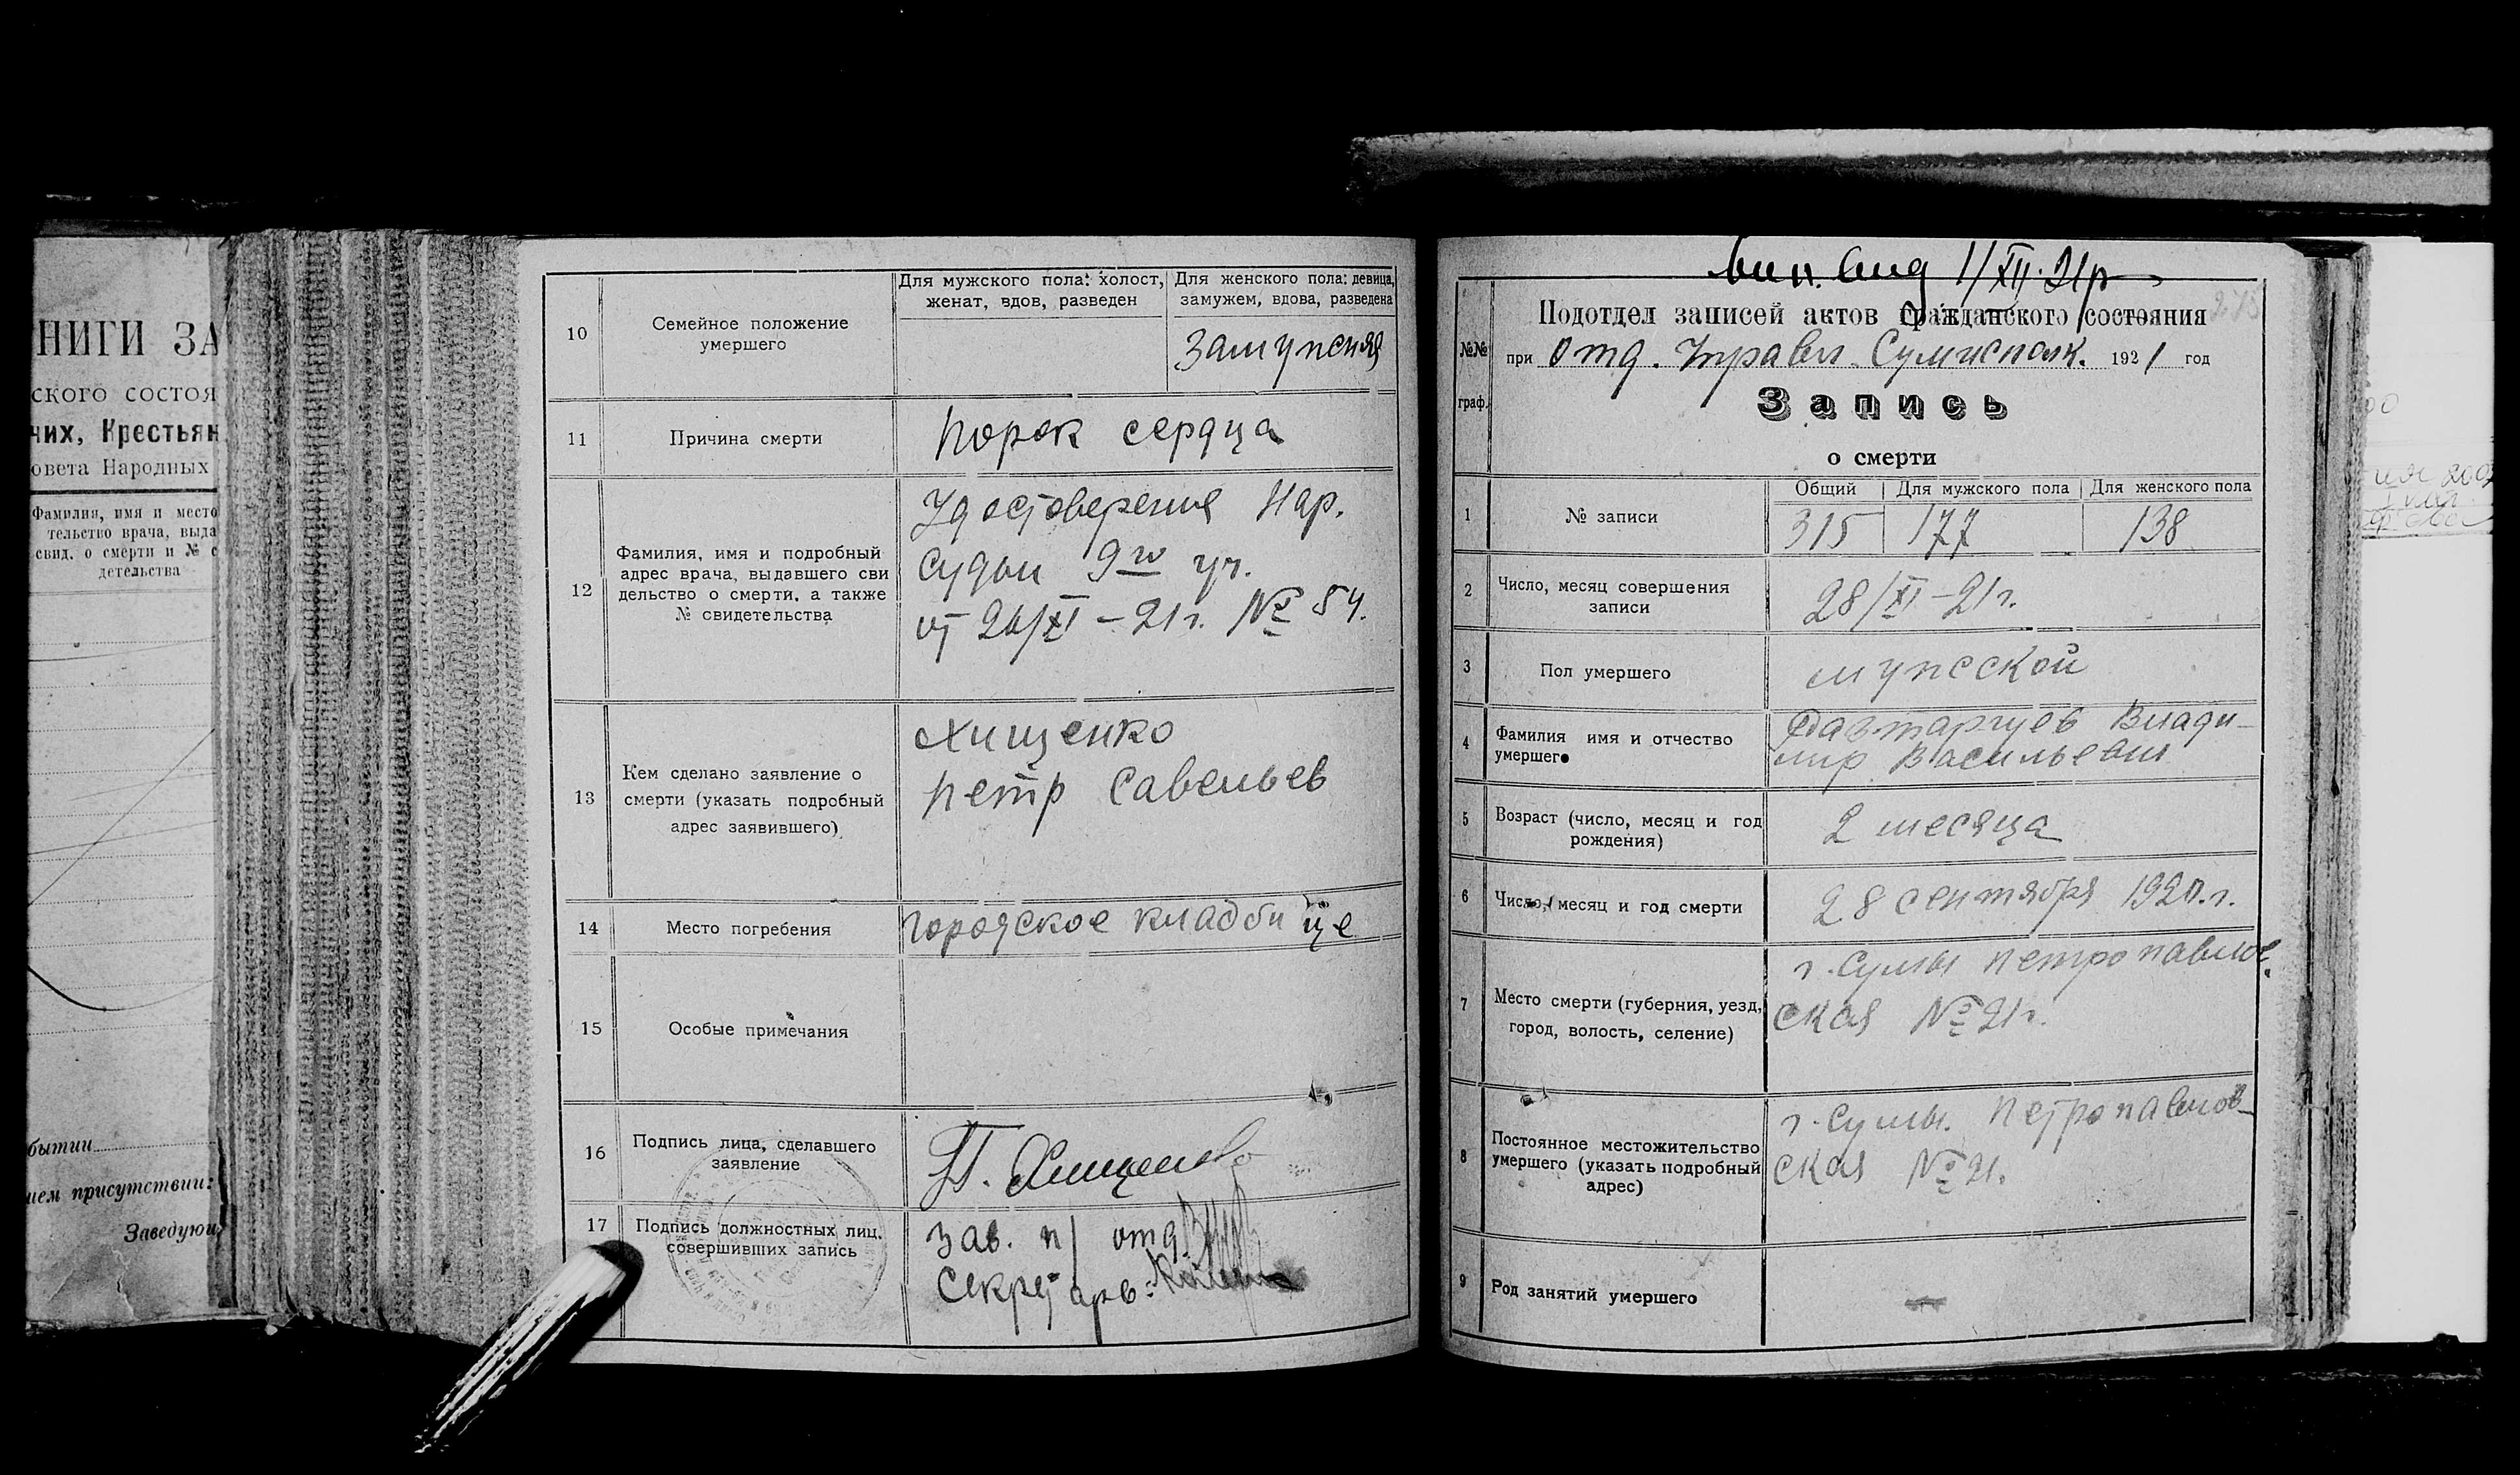 НИГИ ЗА
ского состоя
чих, Крестьян
овета Народных
Фамилия, имя и место
тельство врача, выда
свид. о смерти и № с
детельства
бытии
ием присутствии:
Заведую
10
Семейное положение
умершего
Для мужского пола: холост,
женат, вдов, разведен
Для женского пола: девица,
замужем, вдова, разведена
замужняя
11
Причина смерти
порок сердца
12
Фамилия, имя и подробный
адрес врача, выдавшего сви
дельство о смерти, а также
№ свидетельства
Удостоверения Нар.
судьи 9го уч.
от 26/XI – 21 г. № 54.
13
Кем сделано заявление о
смерти (указать подробный
адрес заявившего)
Хищенко
петр Савельев
14
Место погребения
городское кладбище
15
Особые примечания
16
Подпись лица, сделавшего
заявление
П. Хищенко
17
Подпись должностных лиц,
совершивших запись
Зав. п/отд.
Секретарь:
1/XII. 21р
Подотдел записей актов гражданского состояния
№№
граф.
при Отд. Управл. Сумисполк. 1921 год
Запись
о смерти
1
№ записи
Общий
Для мужского пола
Для женского пола
315
177
138
2
Число, месяц совершения
записи
28/XI – 21 г.
3
Пол умершего
мужской
4
Фамилия имя и отчество
умершего
Влади-
мир Васильевич
5
Возраст (число, месяц и год
рождения)
2 месяца
6
Число, месяц и год смерти
28 сентября 1920. г.
7
Место смерти (губерния, уезд,
город, волость, селение)
г. Сумы петропавлов.
ская № 21
8
Постоянное местожительство
умершего (указать подробный
адрес)
г. Сумы. Петропавлов-
ская № 21.
9
Род занятий умершего
—